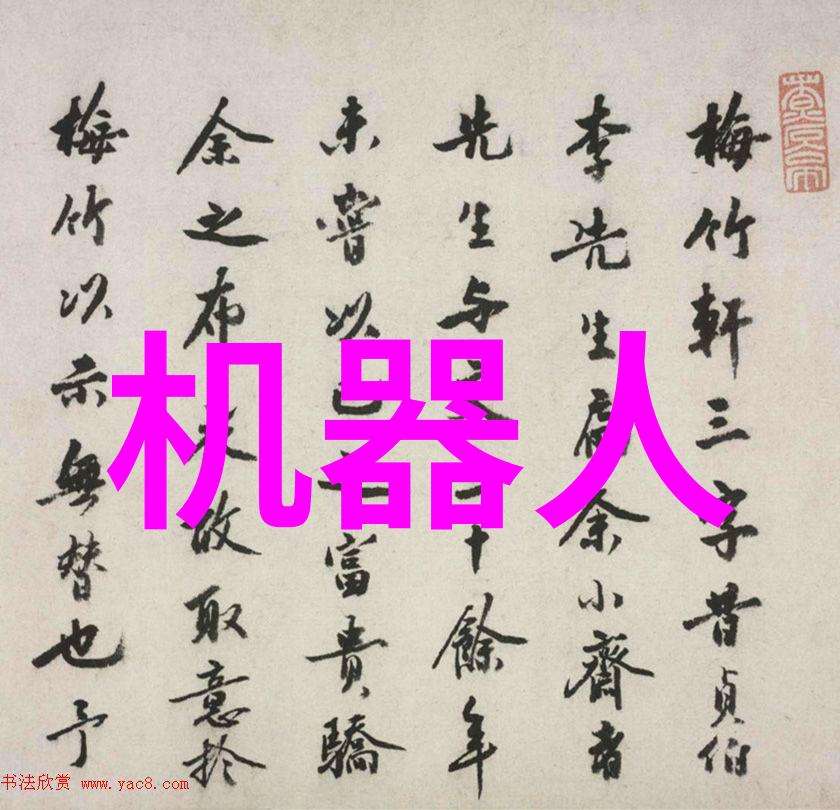 梅竹軒三字昔貞伯
李先生屬余小齋者
先生与交二十餘年
未嘗以己之富貴驕
余之布衣故取意於
梅竹以示無替也予
机器人
书法欣赏 www.yac8.com